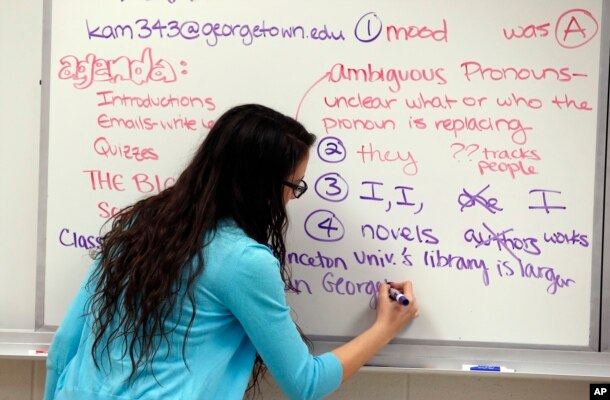 kam343@georgetown.edu ① mood was Ⓐ
agenda:
Introductions
Emails-write
Quizzes
THE
Class
ambiguous Pronouns-
unclear what or who the
pronoun is replacing
② they ?? tracks
people
③ I, I, one I
④ novels authors works
Univ.'s library is larger
AP